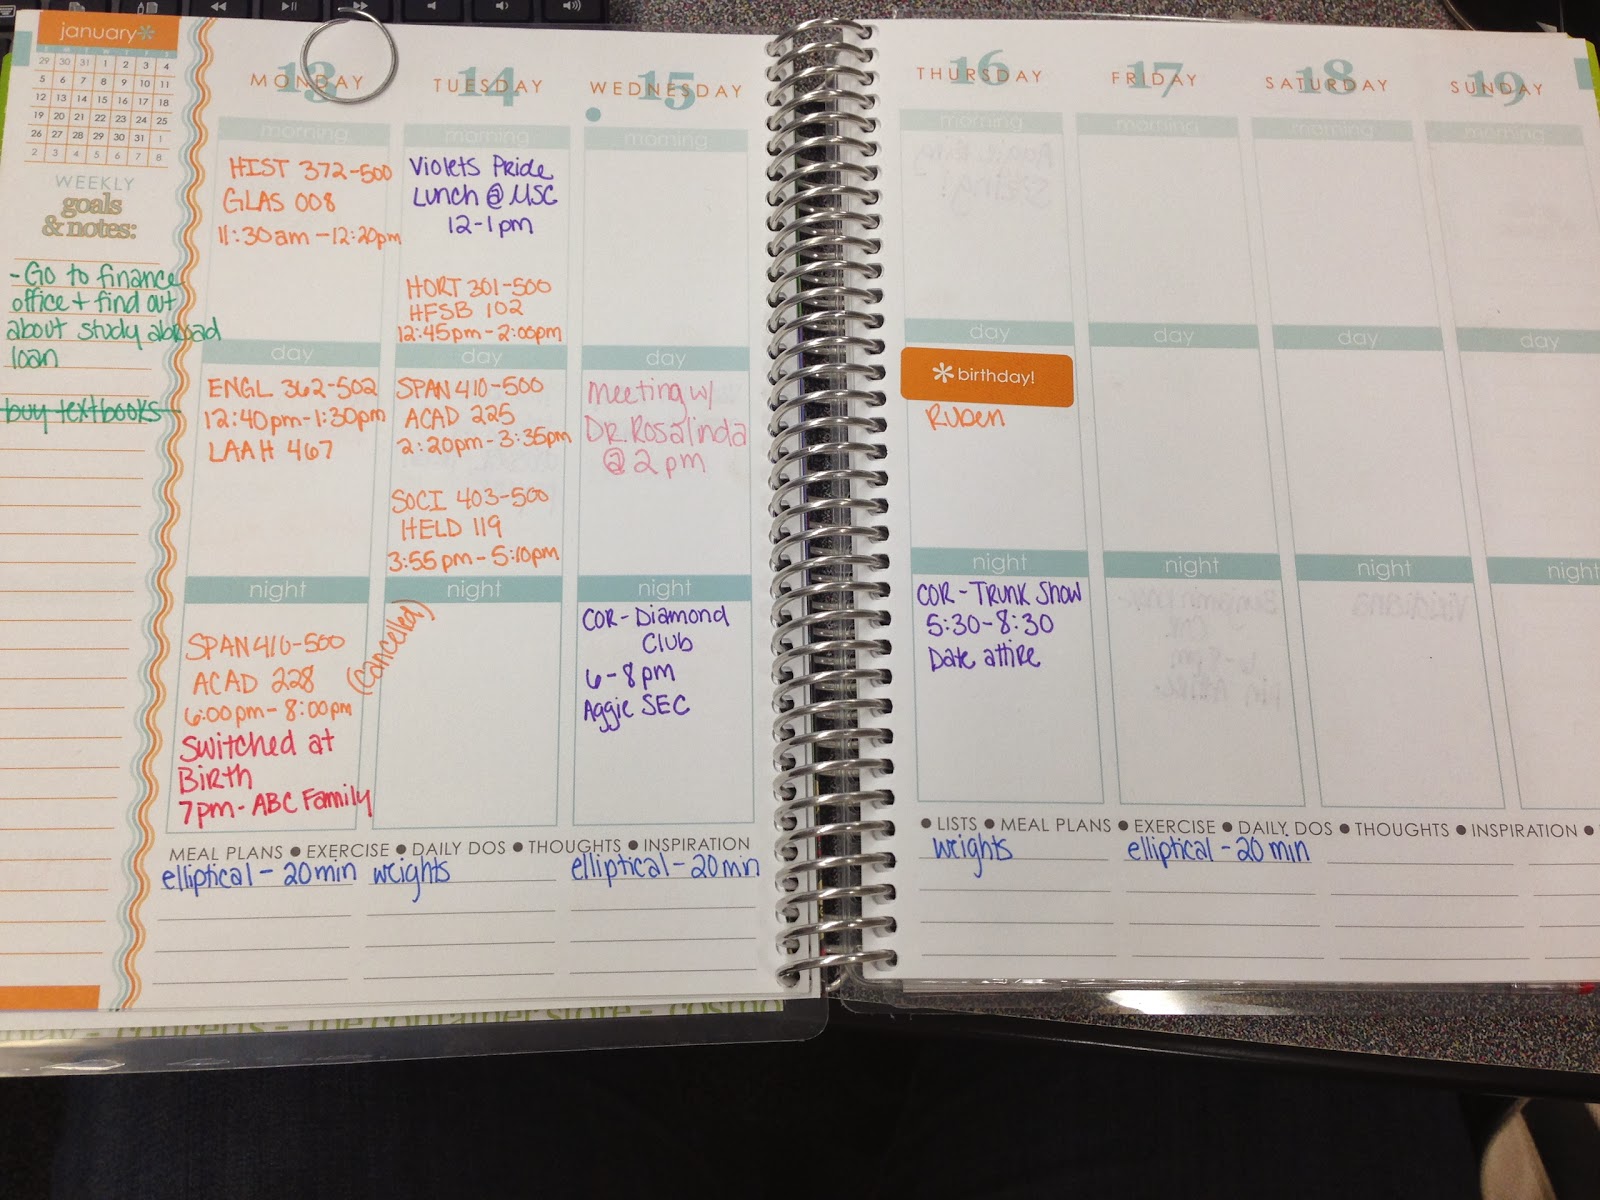 january*
S M T W T F S
29 30 31 1 2 3 4
5 6 7 8 9 10 11
12 13 14 15 16 17 18
19 20 21 22 23 24 25
26 27 28 29 30 31 1
2 3 4 5 6 7 8
WEEKLY
goals
& notes:
- Go to finance
office + find out
about study abroad
loan
buy textbooks
13
MONDAY
morning
HIST 372-500
GLAS 008
11:30am-12:20pm
day
ENGL 362-502
12:40pm-1:30pm
LAAH 467
night
SPAN 410-500
ACAD 228
6:00pm-8:00pm
(Cancelled)
Switched at
Birth
7pm-ABC Family
14
TUESDAY
morning
Violets Pride
Lunch @ MSC
12-1pm
HORT 301-500
HFSB 102
12:45pm-2:00pm
day
SPAN 410-500
ACAD 225
2:20pm-3:35pm
SOCI 403-500
HELD 119
3:55pm-5:10pm
night
15
WEDNESDAY
morning
day
Meeting w/
Dr. Rosalinda
@ 2 pm
night
COR-Diamond
Club
6-8pm
Aggie SEC
MEAL PLANS ● EXERCISE ● DAILY DOS ● THOUGHTS ● INSPIRATION
elliptical-20min weights elliptical-20min
16
THURSDAY
morning
day
*birthday!
Ruben
night
COR-Trunk Show
5:30-8:30
Date attire
17
FRIDAY
morning
day
night
18
SATURDAY
morning
day
night
19
SUNDAY
morning
day
night
● LISTS ● MEAL PLANS ● EXERCISE ● DAILY DOS ● THOUGHTS ● INSPIRATION ●
weights elliptical-20min
concepts - the container store -